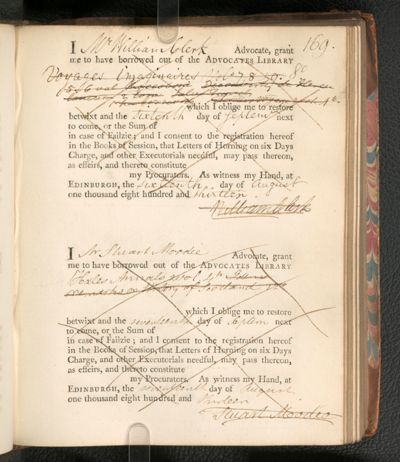 169.
I Mr William Clerk Advocate, grant
me to have borrowed out of the ADVOCATES LIBRARY
Voyages Imaginaires
which I oblige me to restore
betwixt and the sixteenth day of Septem next
to come, or the Sum of
in case of Failzie; and I consent to the registration hereof
in the Books of Session, that Letters of Horning on six Days
Charge, and other Executorials needful, may pass thereon,
as effeirs, and thereto constitute
my Procurators. As witness my Hand, at
EDINBURGH, the sixteenth day of August
one thousand eight hundred and thirteen
William Clerk
I Mr Stuart Moodie Advocate, grant
me to have borrowed out of the ADVOCATES LIBRARY
Annals
of Scotland
which I oblige me to restore
betwixt and the seventeenth day of Septem next
to come, or the Sum of
in case of Failzie; and I consent to the registration hereof
in the Books of Session, that Letters of Horning on six Days
Charge, and other Executorials needful, may pass thereon,
as effeirs, and thereto constitute
my Procurators. As witness my Hand, at
EDINBURGH, the seventeenth day of August
one thousand eight hundred and thirteen
Stuart Moodie